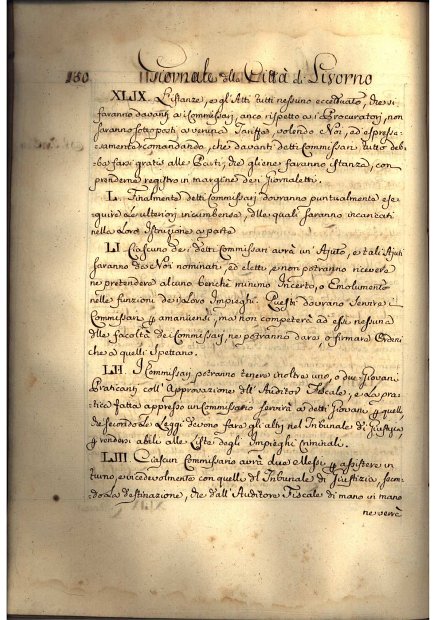 130 Giornale della Città di Livorno
XLIX. L'istanze, e gl'Atti tutti nessuno eccettuato, che si
faranno davanti a i Commissarj, anco rispetto a i Procuratori, non
saranno sottoposti a veruna Tariffa, volendo Noi, ed espres-
samente comandando, che davanti detti Commissari tutto deb-
ba farsi gratis alle Parti, che gliene faranno Istanza, con
prenderne registro in margine de i Giornaletti.
L. Finalmente detti Commissarj dovranno puntualmente ese-
quire le ulteriori incumbenze, delle quali saranno incaricati
nella Loro Istruzione a parte
LI. Ciascuno de i detti Commissari avrà un' Ajuto, e tali Ajuti
saranno da Noi nominati, ed eletti, e non potranno ricevere
ne pretendere alcuno benchè minimo Incerto, o Emolumento
nelle funzioni de i Loro Impieghi. Questi dovranno Servire i
Commissari p amanuensi, ma non competerà ad essi nessuna
delle facoltà de i Commissarj ne potranno dare, o firmare Ordini
che a quelli Spettano.
LII. I Commissarj potranno tenere inoltre uno, o due Giovani
Praticanti coll' Approvazione dell' Auditor Fiscale, e La pra-
tica fatta appresso un Commissario servirà a detti Giovani p quella,
che secondo Le Leggi devono fare gli altri nel Tribunale di Giustizia,
p rendersi abili alle Liste degli Impieghi Criminali.
LIII. Ciascun Commissario avrà due Messi p assistere in
turno, e vicedevolmente con quelle del Tribunale di Giustizia, secon-
do La destinazione, che dall' Auditore Fiscale di mano in mano
ne verrà